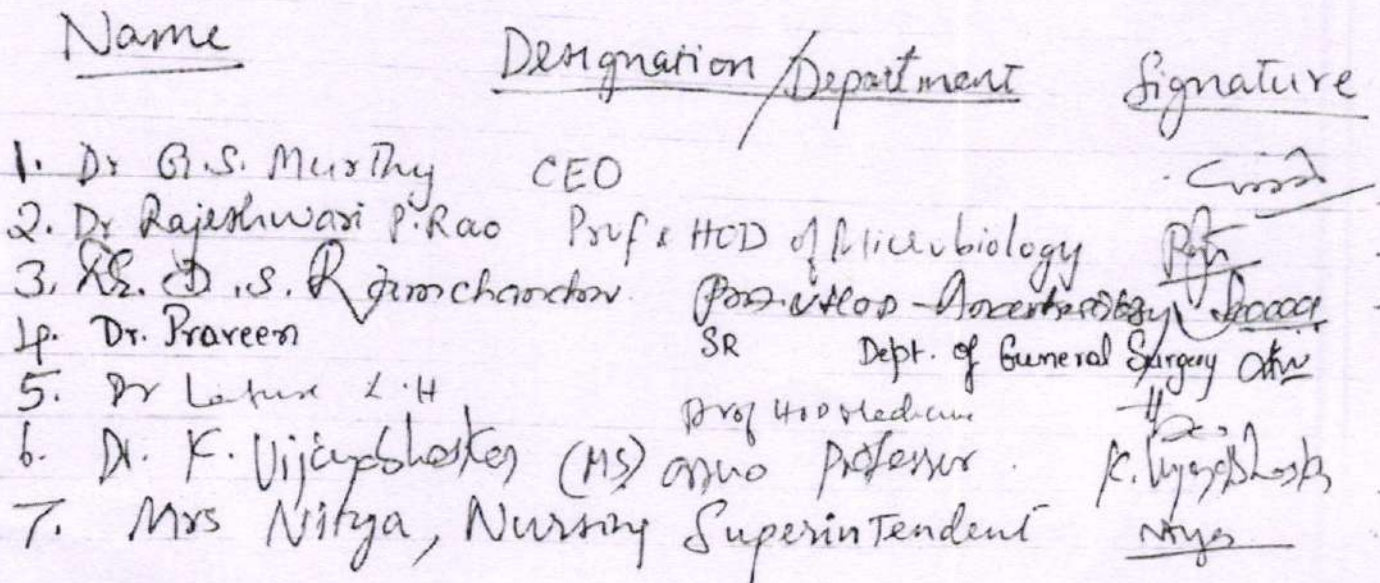 Name Designation/Department Signature
1. Dr G.S. Murthy CEO
2. Dr Rajeshwari P. Rao Prof & HOD of Microbiology
3. Dr. D.S. Ramchandra.
4. Dr. Praveen SR Dept. of General Surgery
5. Dr L.H Prof HOD Medicine
6. Dr. K. Vijayabhasker (MS) asso Professor. K. Vijayabhasker
7. Mrs Nitya, Nursing Superintendent Nitya